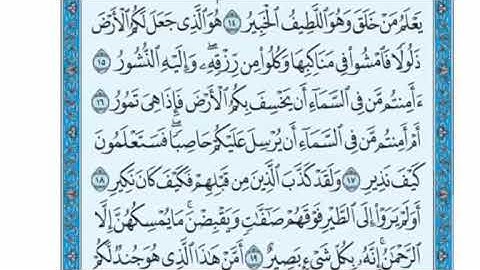 يَعْلَمُ مَنْ خَلَقَ وَهُوَ ٱللَّطِيفُ ٱلْخَبِيرُ ١٤ هُوَ ٱلَّذِى جَعَلَ لَكُمُ ٱلْأَرْضَ
ذَلُولًا فَٱمْشُوا۟ فِى مَنَاكِبِهَا وَكُلُوا۟ مِن رِّزْقِهِۦ ۖ وَإِلَيْهِ ٱلنُّشُورُ ١٥
ءَأَمِنتُم مَّن فِى ٱلسَّمَآءِ أَن يَخْسِفَ بِكُمُ ٱلْأَرْضَ فَإِذَا هِىَ تَمُورُ ١٦
أَمْ أَمِنتُم مَّن فِى ٱلسَّمَآءِ أَن يُرْسِلَ عَلَيْكُمْ حَاصِبًا ۖ فَسَتَعْلَمُونَ
كَيْفَ نَذِيرِ ١٧ وَلَقَدْ كَذَّبَ ٱلَّذِينَ مِن قَبْلِهِمْ فَكَيْفَ كَانَ نَكِيرِ ١٨
أَوَلَمْ يَرَوْا۟ إِلَى ٱلطَّيْرِ فَوْقَهُمْ صَٰٓفَّٰتٍ وَيَقْبِضْنَ ۚ مَا يُمْسِكُهُنَّ إِلَّا
ٱلرَّحْمَٰنُ ۚ إِنَّهُۥ بِكُلِّ شَىْءٍۭ بَصِيرٌ ١٩ أَمَّنْ هَٰذَا ٱلَّذِى هُوَ جُندٌ لَّكُمْ